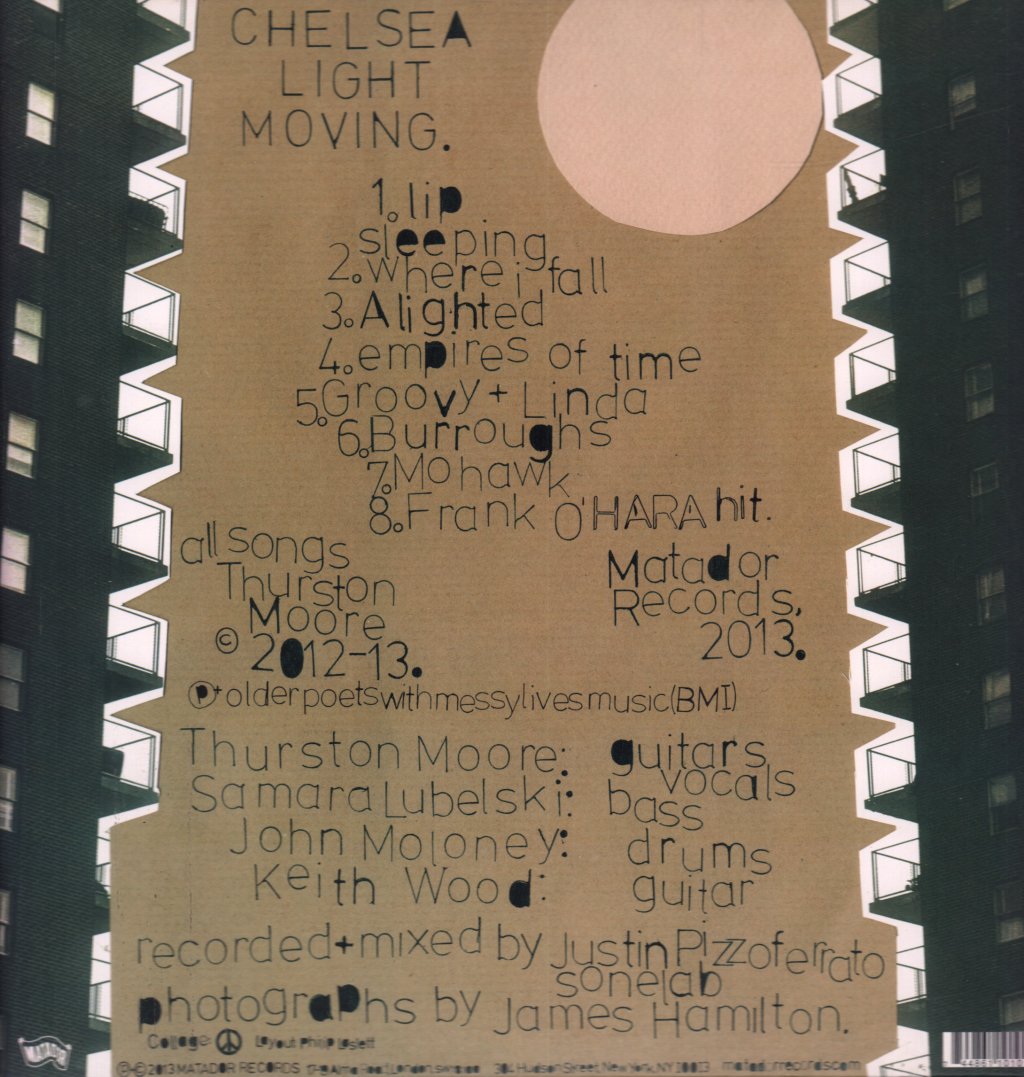 CHELSEA
LIGHT
MOVING.
1. lip
sleeping
2. where i fall
3. Alighted
4. empires of time
5. Groovy + Linda
6. Burroughs
7. Mohawk
8. Frank O'HARA hit.
all songs
Thurston
Moore
© 2012-13.
Matador
Records,
2013.
℗ + olderpoetswithmessylivesmusic(BMI)
Thurston Moore: guitars
vocals
Samara Lubelski: bass
John Moloney: drums
Keith Wood: guitar
recorded+mixed by Justin Pizzoferrato
sonelab
photographs by James Hamilton.
Collage: Layout: Philip Laslett
℗ © 2013 MATADOR RECORDS 17-19 Alma Road, London, 304 Hudson Street, New York, NY 10013 matadorrecords.com
MATADOR